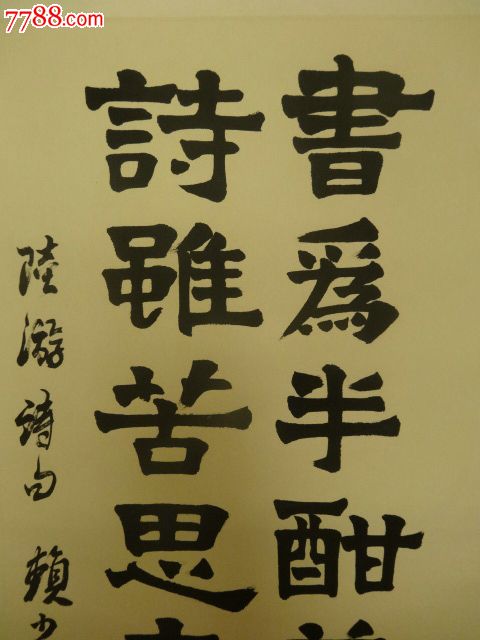 7788.com
書為半酣
詩雖苦思
陸游詩句 賴少